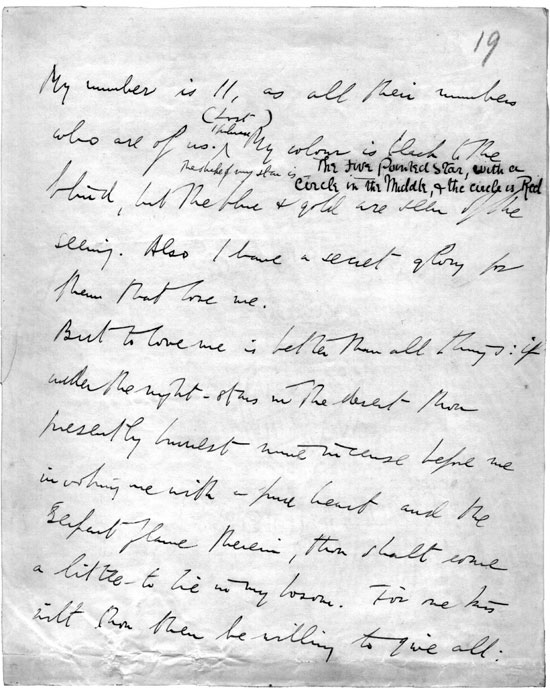 19
My number is 11, as all their numbers
(Lost
1 phrase)
who are of us. My colour is black to the
The shape of my star is – The Five Pointed Star, with a
Circle in the Middle, & the circle is Red
blind, but the blue & gold are seen of the
seeing. Also I have a secret glory for
them that love me.
But to love me is better than all things: if
under the night-stars in the desert thou
presently burnest mine incense before me
invoking me with a pure heart and the
Serpent flame therein, thou shalt come
a little to lie in my bosom. For one kiss
wilt thou then be willing to give all: